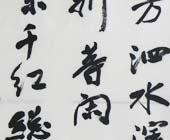 芳泗水濱
新等闲
紫千红總